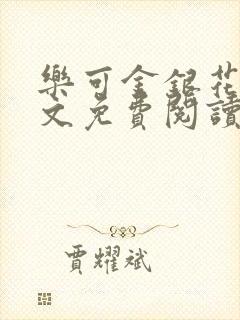 樂可金銀花
文免費閱讀
賈耀斌